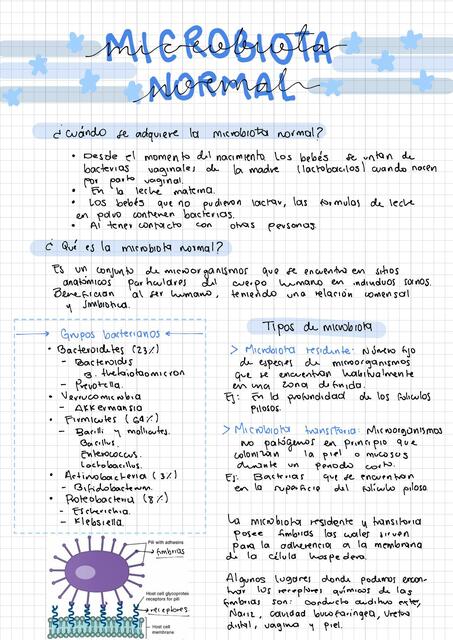 MICROBIOTA
microbiota
NORMAL
normal
¿Cuándo se adquiere la microbiota normal?
• Desde el momento del nacimiento. Los bebés se untan de
bacterias vaginales de la madre (lactobacilos) cuando nacen
por parto vaginal.
• En la leche materna.
• Los bebés que no pudieron lactar, las formulas de leche
en polvo contienen bacterias.
• Al tener contacto con otras personas.
¿Qué es la microbiota normal?
Es un conjunto de microorganismos que se encuentra en sitios
anatómicos particulares del cuerpo humano en individuos sanos.
Benefician al ser humano, teniendo una relación comensal
y simbiotica.
Grupos bacterianos
• Bacteroidetes (23%)
- Bacteroids
B. thetaiotaomicron
- Prevotella.
• Verrucomicrobia
- Akkermansia
• Firmicutes (64%)
- Bacilli y mollicutes.
Bacillus.
Enterococcus.
Lactobacillus.
• Actinobacteria (3%)
- Bifidobacterium.
• Proteobacteria (8%)
- Escherichia.
- Klebsiella.
Pili with adhesins
fimbrias
Host cell glycoprotein
receptors for pili
receptores
Host cell
membrane
Tipos de microbiota
> Microbiota residente: Número fijo
de especies de microorganismos
que se encuentran habitualmente
en una zona definida.
Ej: En la profundidad de los folículos
pilosos.
> Microbiota transitoria: Microorganismos
no patógenos en principio que
colonizan la piel o mucosas
durante un periodo corto.
Ej: Bacterias que se encuentran
en la superficie del folículo piloso.
La microbiota residente y transitoria
posee fimbrias las cuales sirven
para la adherencia a la membrana
de la célula hospedera.
Algunos lugares donde podemos encon-
trar los receptores químicos de las
fimbrias son: conducto auditivo exter,
Nariz, cavidad bucofaringea, uretra
distal, vagina y piel.